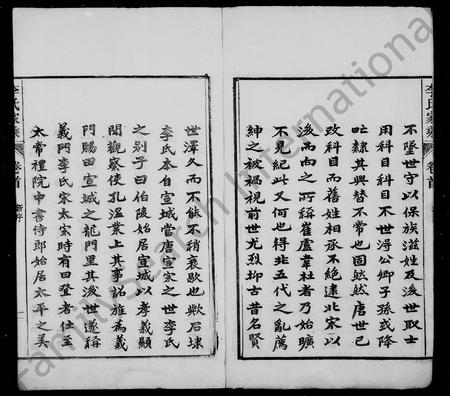 李氏家乘
卷首
不墜世守以保族滋姓及後世取士
用科目科目不世得公卿子孫或降
其興替不常也固然然唐世已
改科目而舊姓相承不絕逮北宋以
後而向之所稱崔盧韋杜者乃始曠
不見紀甚又何也得非五代之亂薦
紳之被禍視前世尤烈抑古昔名賢
世澤久而不能不稍衰歇也歟石埭
李氏本自宣城當唐宣宗之世李氏
之別子曰伯陵始居宣城以孝義顯
聞觀察使孔溫業上其事詔旌為義
門賜田宣城之龍門里其後世遂稱
義門李氏宋太宗時有曰登者仕至
太常禮院中書侍郎始居太平之美
李氏家乘
卷首
新序
FamilySearch International